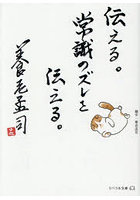 伝える。
常識のズレを
伝える。
養老孟司